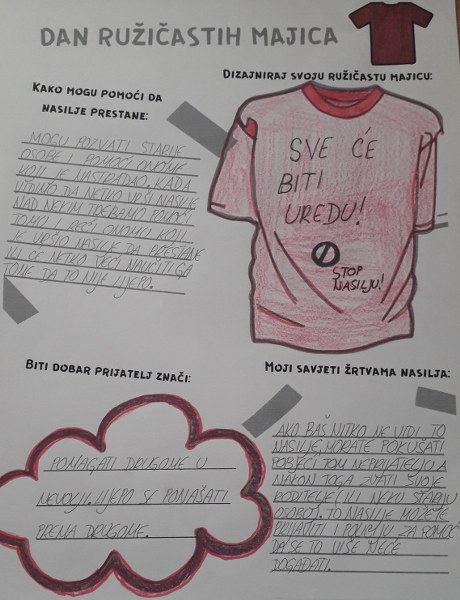 DAN RUŽIČASTIH MAJICA
KAKO MOGU POMOĆI DA
NASILJE PRESTANE:
MOGU POZVATI STARIJE
OSOBE I POMOĆI ONOME
KOJI JE NASTRADAO. KADA
VIDIMO DA NETKO VRŠI NASILJE
NAD NEKIM TREBAMO POMOĆI
TOMU I REĆI ONOMU KOJI
JE VRŠIO NASILJE DA PRESTANE
ILI ĆE NETKO REĆI NAUČITI GA
TOME DA TO NIJE LIJEPO.
DIZAJNIRAJ SVOJU RUŽIČASTU MAJICU:
SVE ĆE
BITI
UREDU!
STOP
NASILJU!
BITI DOBAR PRIJATELJ ZNAČI:
POMAGATI DRUGOME U
NEVOLJI. LIJEPO SE PONAŠATI
PREMA DRUGOME.
MOJI SAVJETI ŽRTVAMA NASILJA:
AKO BAŠ NITKO NE VIDI TO
NASILJE, MORATE POKUŠATI
POBJEĆI TOM NEPRIJATELJU A
NAKON TOGA ZVATI SVOJE
RODITELJE ILI NEKU STARIJU
OSOBU. TO NASILJE MOŽETE
PRIJAVITI I ZA POMOĆ
DA SE TO VIŠE NEĆE
DOGAĐATI.